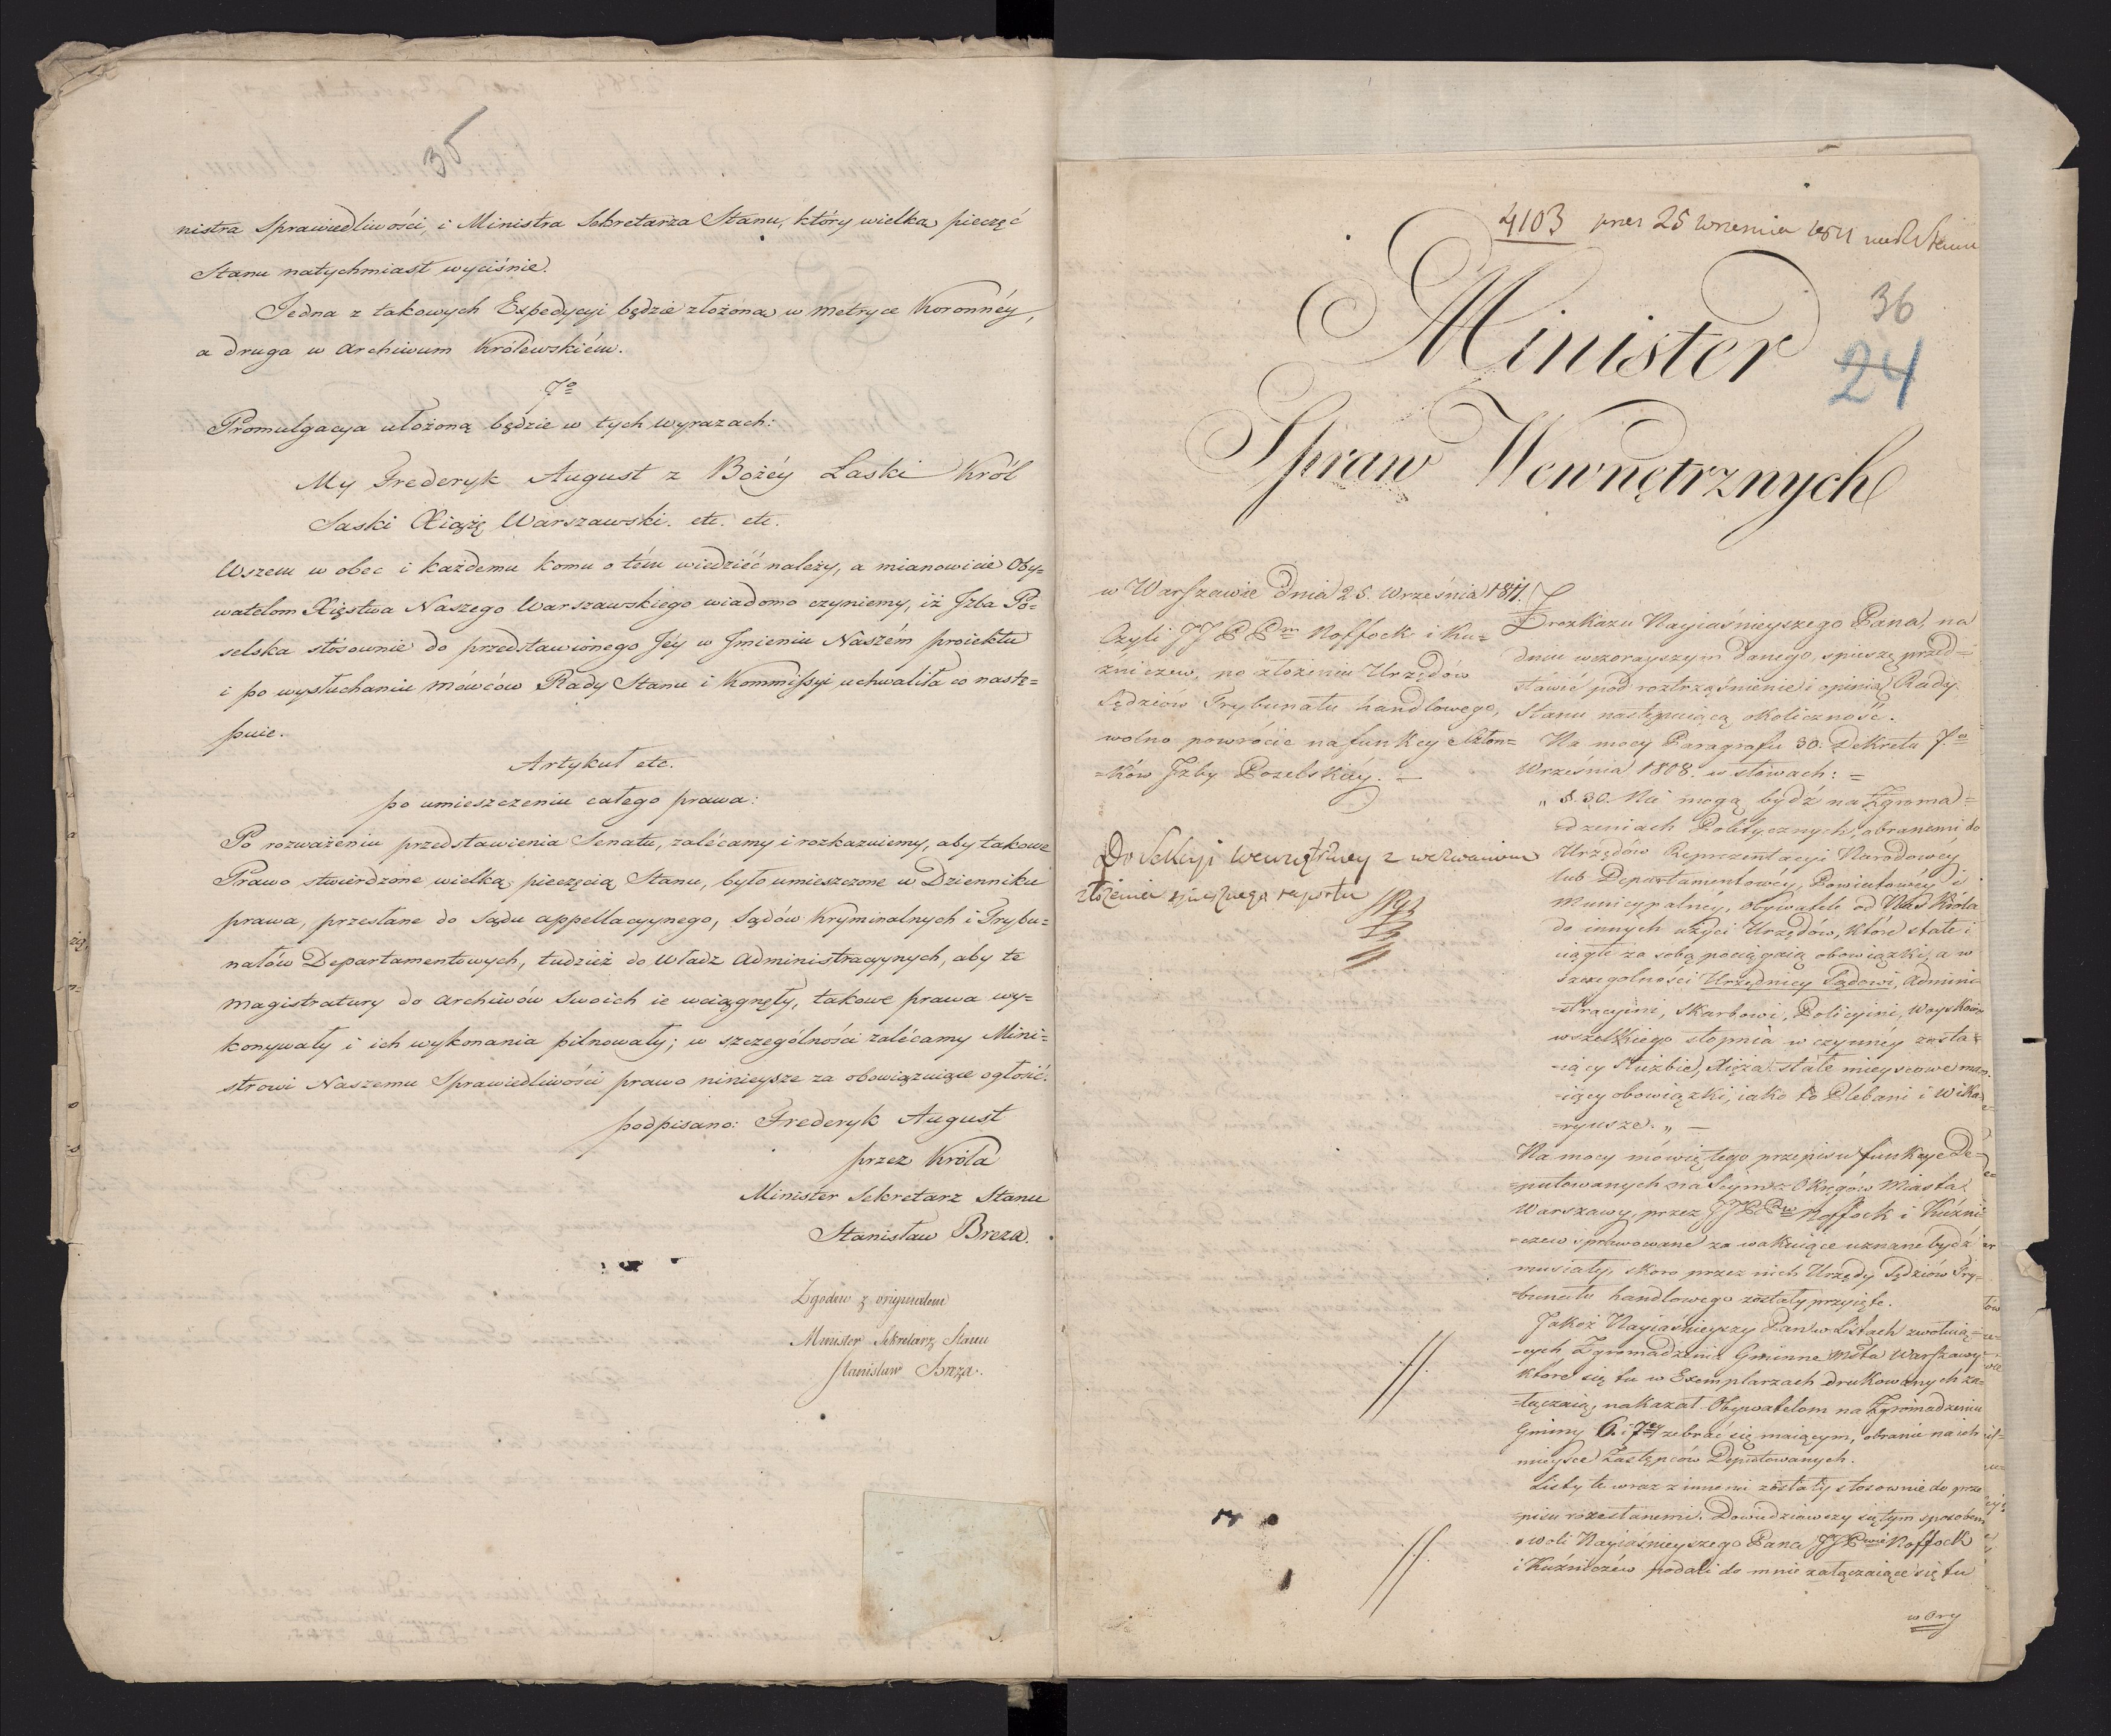 35
nistra Sprawiedliwości, i Ministra Sekretarza Stanu, który wielką pieczęć
Stanu natychmiast wyciśnie.
Jedna z takowych Expedycyi będzie złożona w Metryce Koronnéy,
a druga w Archiwum Królewskiém.
7º
Promulgacya ułożoną będzie w tych wyrazach:
My Frederyk August z Bożéy Łaski Król
Saski Xiążę Warszawski. etc. etc.
Wszem w obec i każdemu komu o tém wiedzieć należy, a mianowicie Oby=
watelom Xięstwa Naszego Warszawskiego wiadomo czyniemy, iż Jzba Po=
selska stósownie do przedstawionego Jéy w Jmieniu Naszém proiektu
i po wysłuchaniu mówców Rady Stanu i Kommissyi uchwaliła co nastę=
puie.
Artykuł etc.
po umieszczeniu całego prawa:
Po rozważeniu przedstawienia Senatu, zalécamy i rozkazuiemy, aby takowe
Prawo stwierdzone wielką pieczęcią Stanu, było umieszczone w Dzienniku
prawa, przesłane do Sądu appellacyynego, Sądów Kryminalnych i Trybu=
nałów Departamentowych, tudzież do Władz Administracyynych, aby te
Magistratury do Archiwów Swoich ie wciągnęły, takowe prawa wy=
konywały i ich wykonania pilnowały; w szczególności zalécamy Mini=
strowi Naszemu Sprawiedliwości prawo ninieysze za obowiązuiące ogłosić.
podpisano: Frederyk August
przez Króla
Minister Sekretarz Stanu
Stanisław Breza.
Zgodno z oryginałem
Minister Sekretarz Stanu
Stanisław Breza.
4103 25 września 1811
36
24
Minister
Spraw Wewnętrznych
w Warszawie dnia 25. Września 1811.
Czyli JJ PPm Noffock i Ku=
zniczew, po złożeniu Urzędów
Sędziów Trybunału handlowego,
wolno powrócić na funkcye Człon=
=ków Jzby Poselskiéy. —
Do Sekcyi Wewnętrzney z wezwaniem
złożenia spiesznego raportu
Z rozkazu Nayiaśnieyszego Pana, na
dniu wczorayszym danego, spieszę przed=
stawić pod roztrząśnienie i opinią Rady
Stanu następuiącą okoliczność.
Na mocy Paragrafu 30. Dekretu 7.go
Września 1808. w słowach: =
„ §. 30. Nie mogą bydź na Zgroma=
dzeniach Politycznych, obranemi do
Urzędów Reprezentacyi Narodowéy
lub Departamentowéy, Powiatowéy i
Municypalnéy, obywatele od Nas Króla
do innych użyci Urzędów, które stałe i
ciągłe za sobą pociągaią obowiązki, a w
szczególności Urzędnicy Sądowi, Admini=
=stracyini, Skarbowi, Policyini, Woyskowi
wszelkiego stopnia w czynnéy zosta=
=iący służbie, Xięża stałe mieyscowe ma=
=iący obowiązki, iako to Plebani i Wika=
=ryusze. „ —
Na mocy mówię tego przepisu funkcye De=
=putowanych na Seym z Okręgów Miasta
Warszawy, przez JJPPw Noffock i Kuźni=
=czew sprawowane za wakuiące uznane bydź
musiały, skoro przez nich Urzędy Sędziów Try=
=bunału handlowego zostały przyięte.
Jakoż Nayiaśnieyszy Pan w Listach zwołuią=
=cych Zgromadzenia Gminne Msta Warszawy
które się tu w Exemplarzach drukowanych za=
=łączaią, nakazał Obywatelom na Zgromadzeniu
Gminy 6. i 7éy zebrać się maiącym, obranie na ich
mieysce Zastępców Deputowanych.
Listy te wraz z innemi zostały stosownie do prze
=pisu rozesłanemi. Dowiedziawszy się tym sposobem
o woli Nayiaśnieyszego Pana JJPwie Noffock
i Kuźniczew podali do mnie załączaiące się tu
w Ory